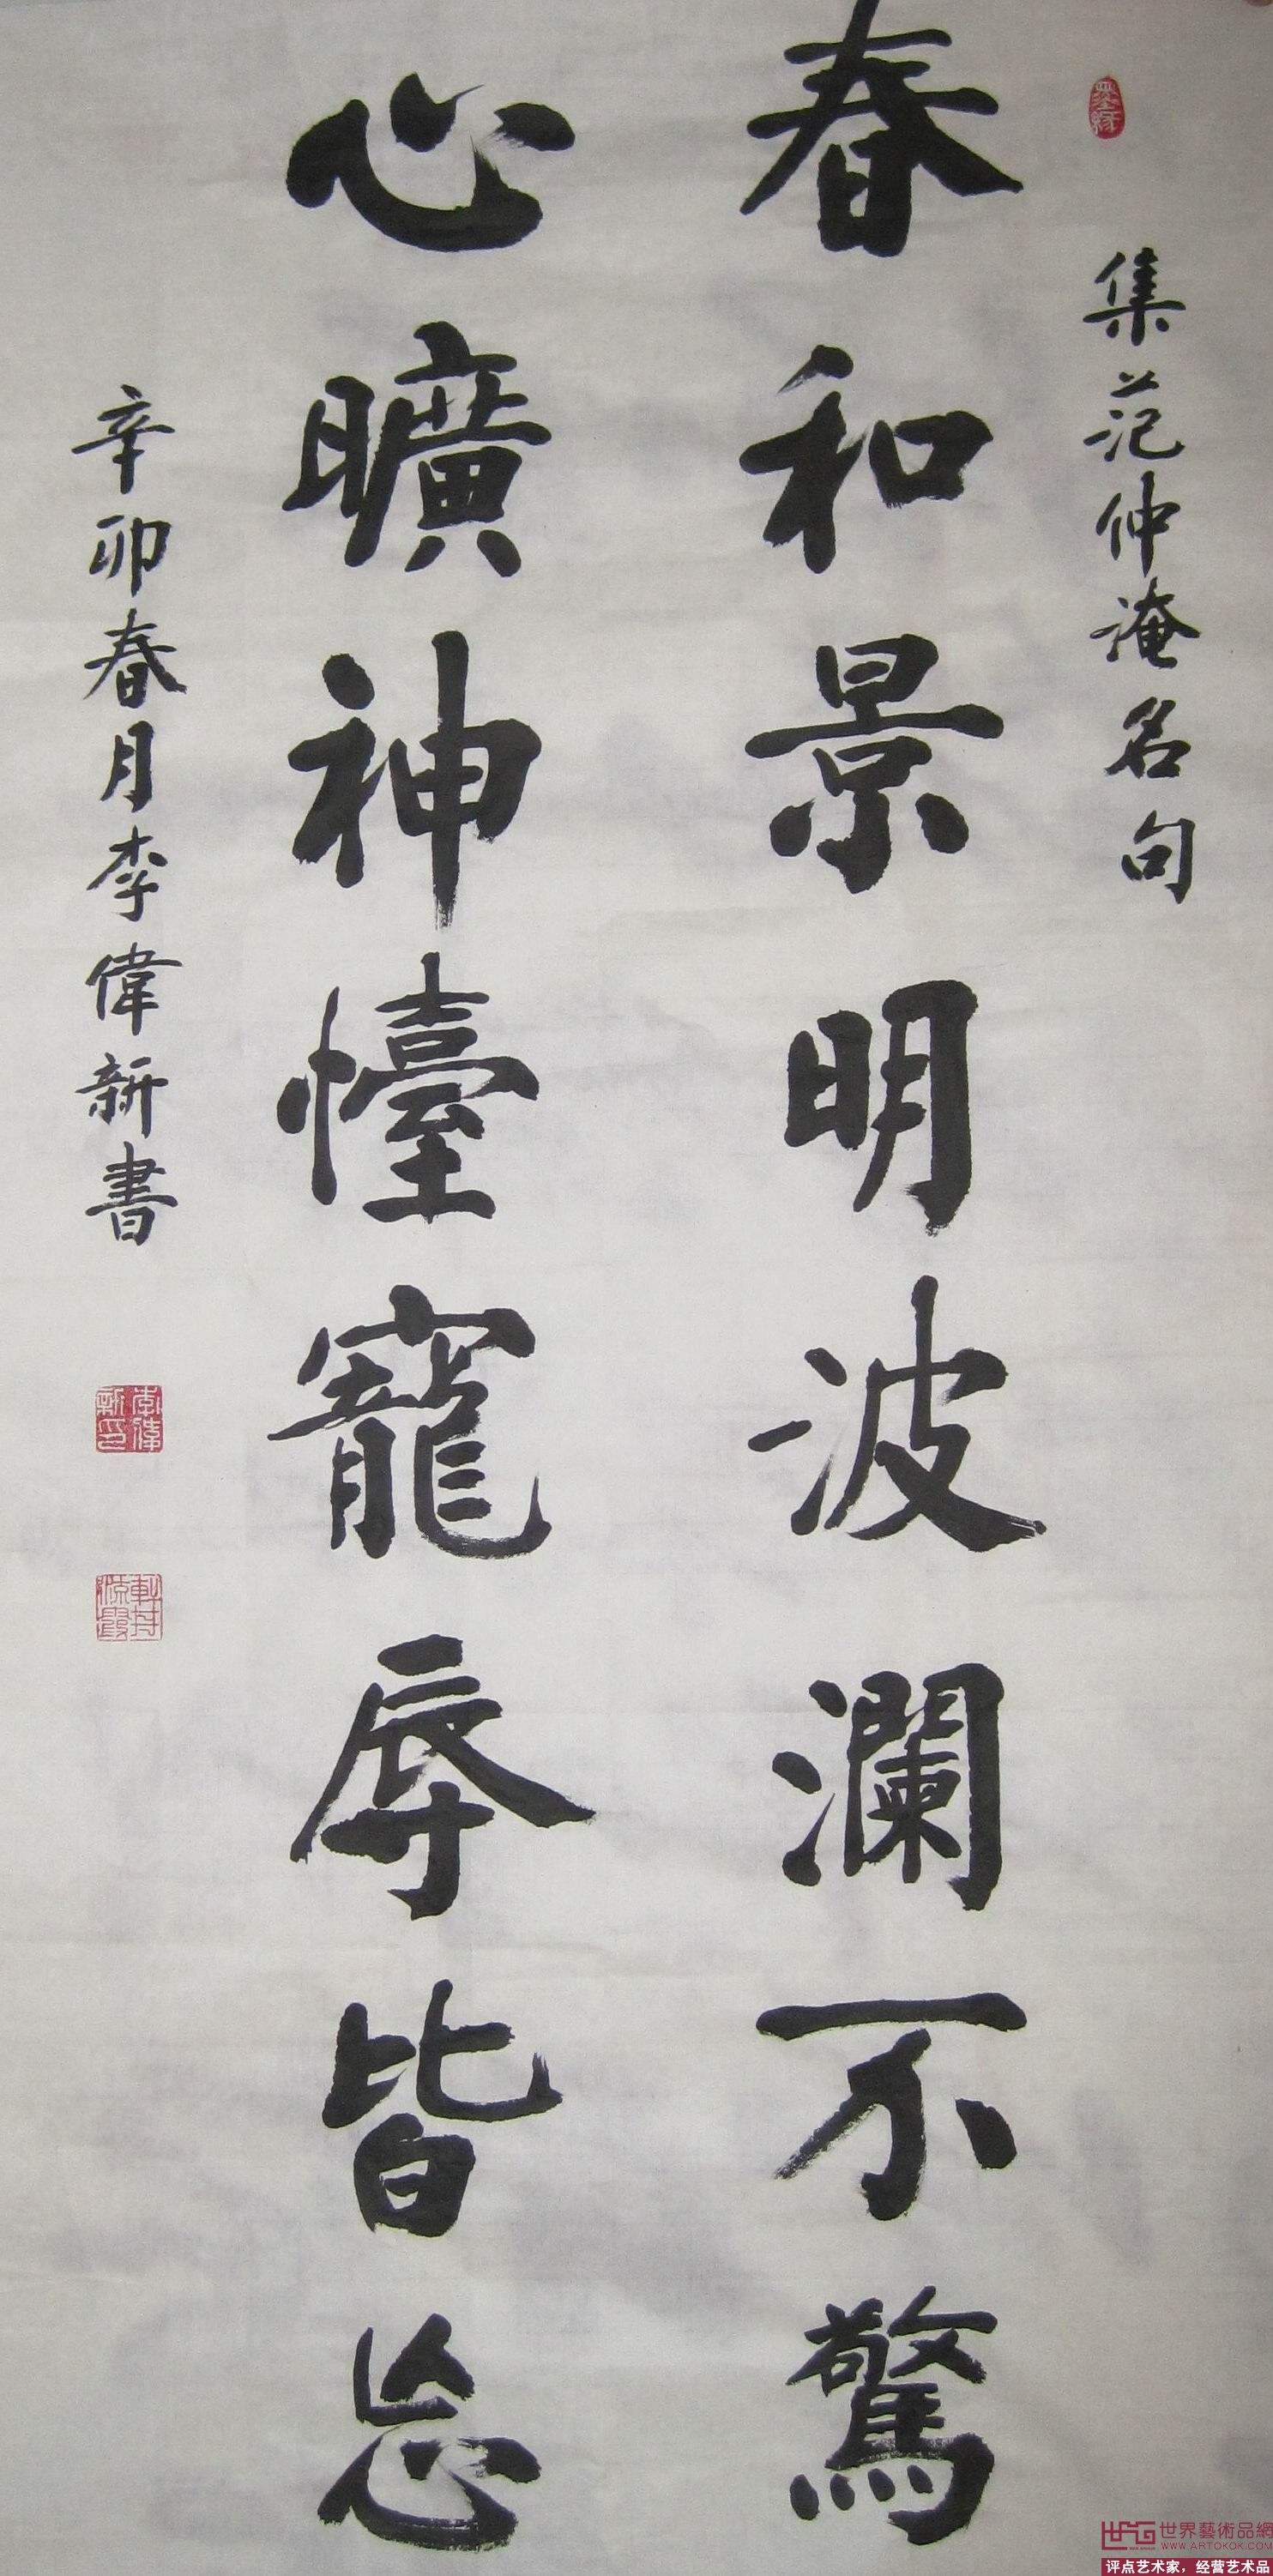 集范仲淹名句
春和景明波瀾不驚
心曠神懛寵辱皆忘
辛卯春月李偉新書
李偉新印
世界藝術品網
WWW.ARTOKOK.COM
评点艺术家，经营艺术品